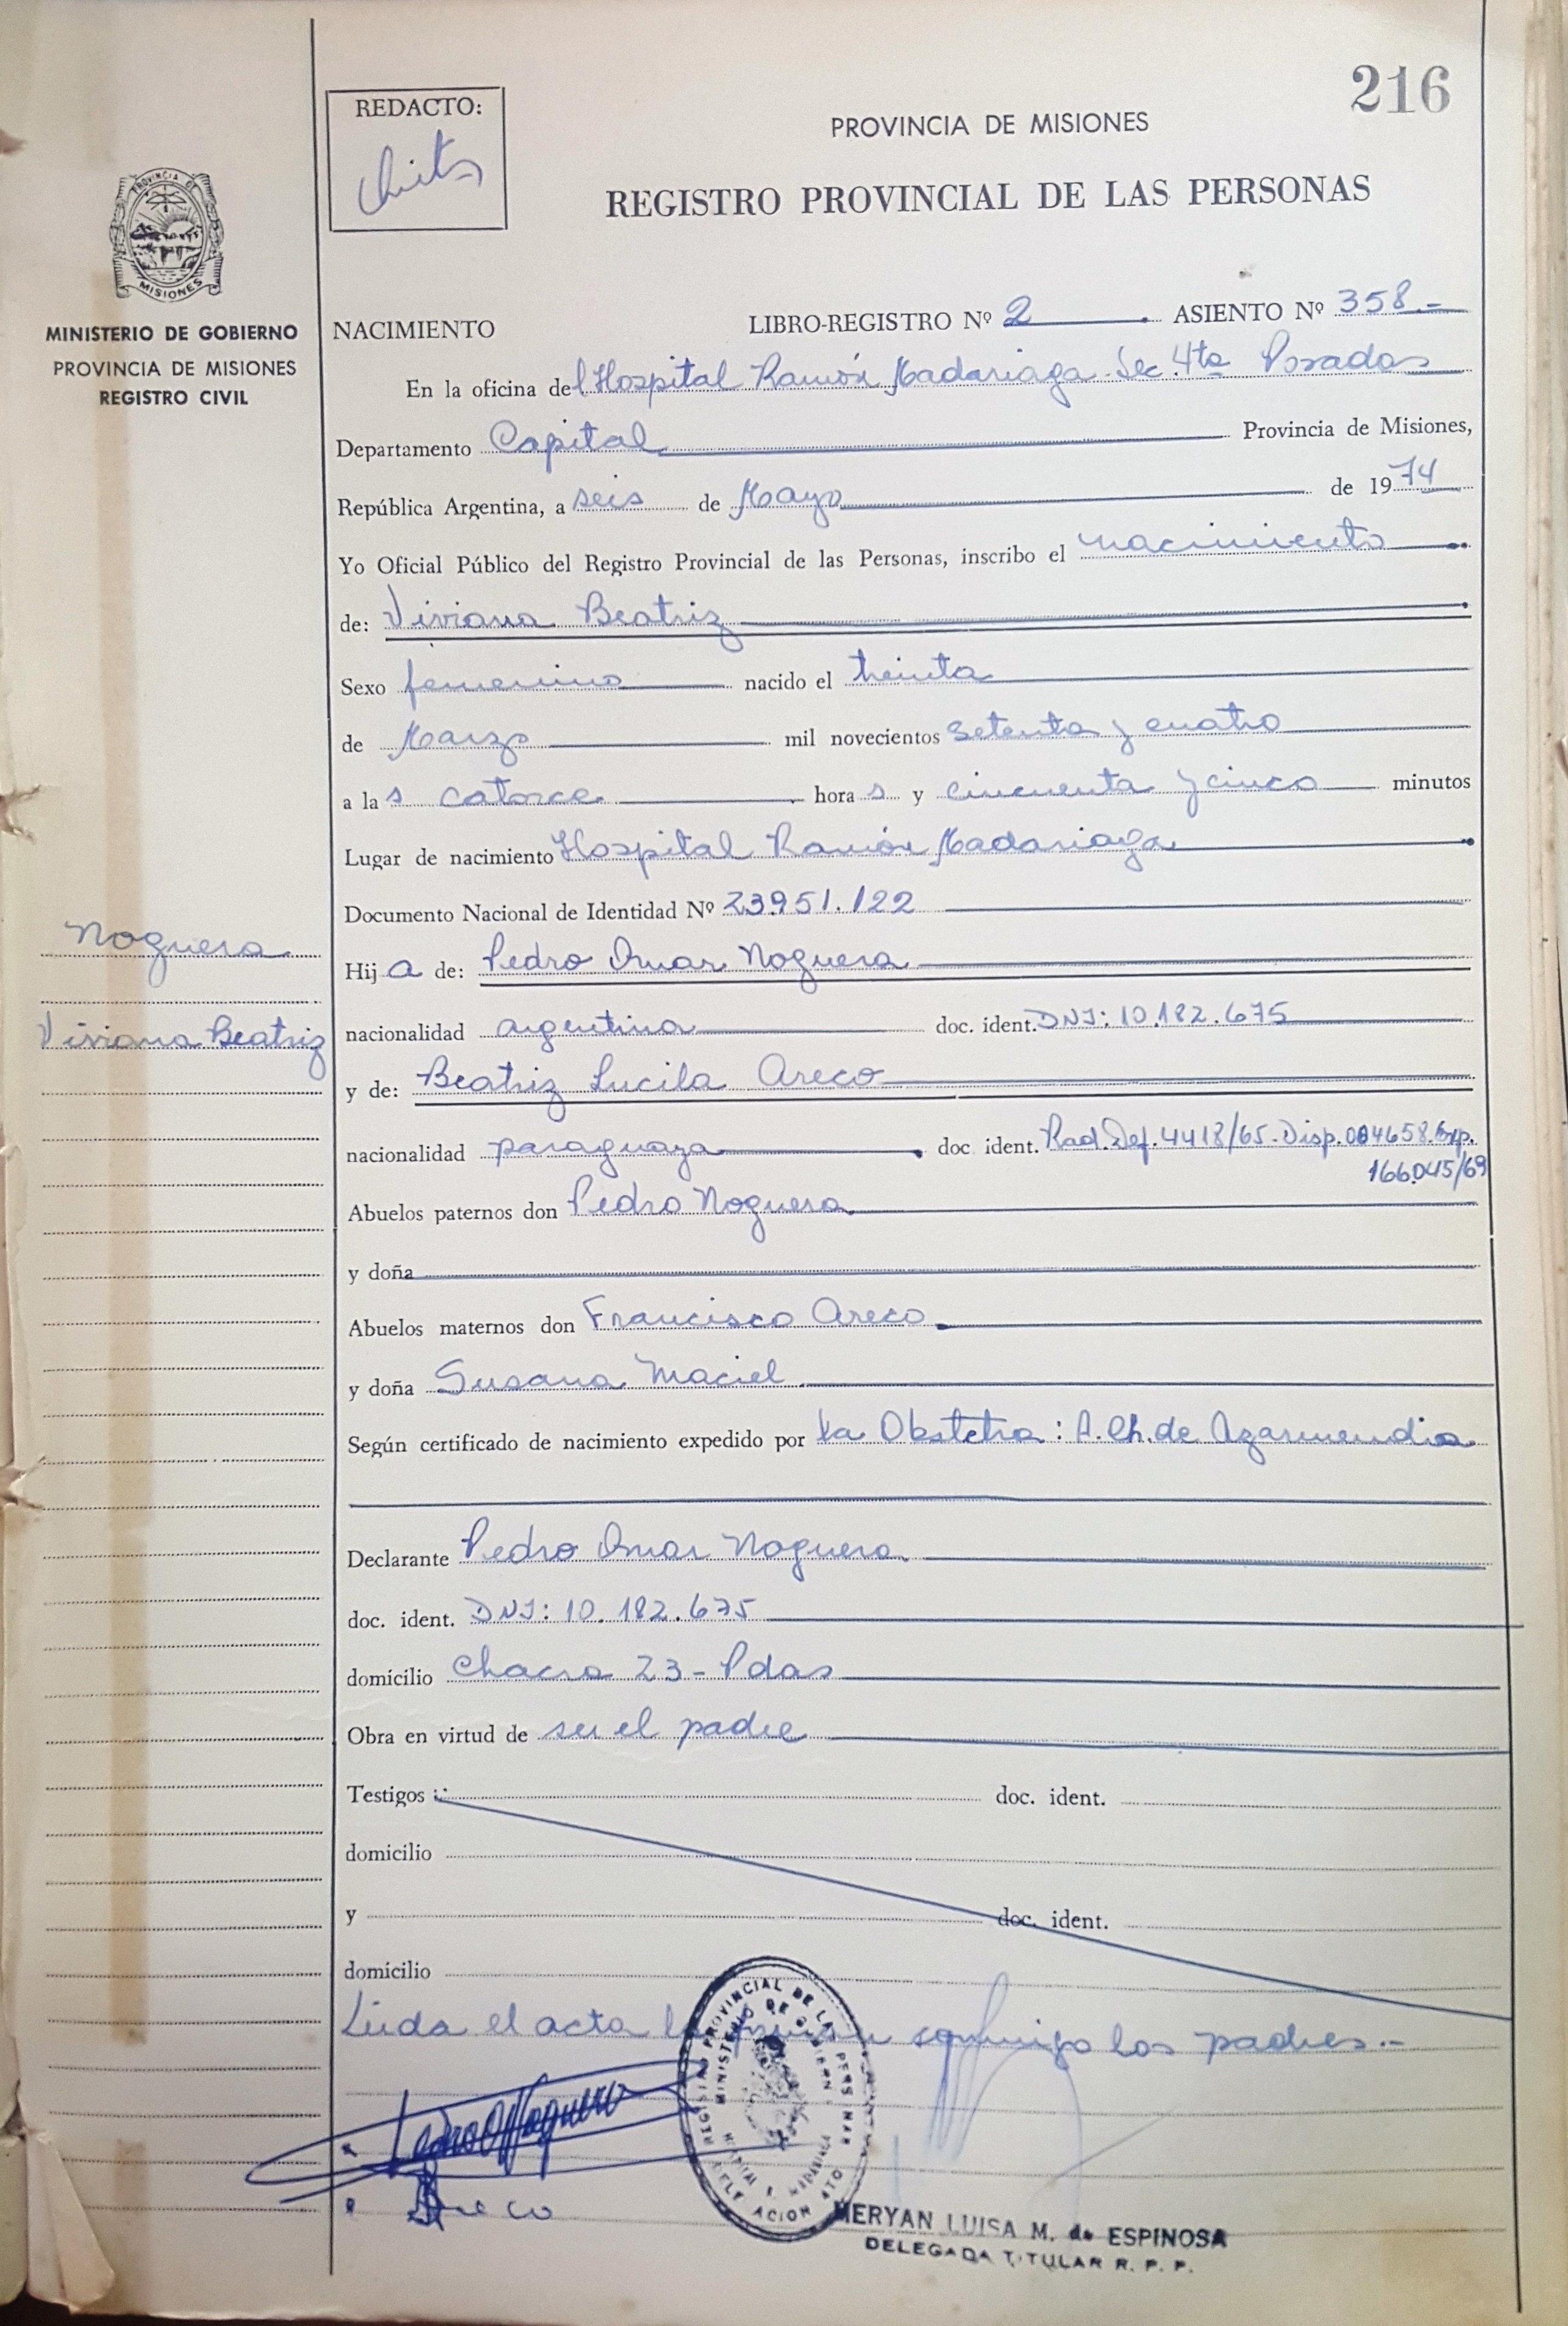 216
REDACTO:
PROVINCIA DE MISIONES
REGISTRO PROVINCIAL DE LAS PERSONAS
PROVINCIA DE
MISIONES
MINISTERIO DE GOBIERNO
PROVINCIA DE MISIONES
REGISTRO CIVIL
NACIMIENTO LIBRO-REGISTRO Nº 2 ASIENTO Nº 358.-
En la oficina del Hospital Ramón Madariaga Sec. 4ta Posadas
Departamento Capital Provincia de Misiones,
República Argentina, a seis de Mayo de 1974
Yo Oficial Público del Registro Provincial de las Personas, inscribo el nacimiento
de: Viviana Beatriz
Sexo femenino nacido el treinta
de Marzo mil novecientos setenta y cuatro
a las catorce horas y cincuenta y cinco minutos
Lugar de nacimiento Hospital Ramón Madariaga
Documento Nacional de Identidad Nº 23.951.122
Noguera
Hija de: Pedro Omar Noguera
Viviana Beatriz
nacionalidad argentina doc. ident. DNI: 10.182.675
y de: Beatriz Lucila Areco
nacionalidad paraguaya doc. ident. Rad. Def. 4418/65-Disp. 004658. Exp.
166.045/69
Abuelos paternos don Pedro Noguera
y doña
Abuelos maternos don Francisco Areco
y doña Susana Maciel
Según certificado de nacimiento expedido por la Obstetra: A. Ch. de Azarmendia
Declarante Pedro Omar Noguera
doc. ident. DNI: 10.182.675
domicilio Chacra 23 - Pdas
Obra en virtud de ser el padre
Testigos: doc. ident.
domicilio
y doc. ident.
domicilio
Leida el acta la firman conmigo los padres.-
Pedro O Noguera
Areco
REGISTRO PROVINCIAL DE LAS PERSONAS
MINISTERIO DE GOBIERNO
MERYAN LUISA M. de ESPINOSA
DELEGADA TITULAR R. P. P.